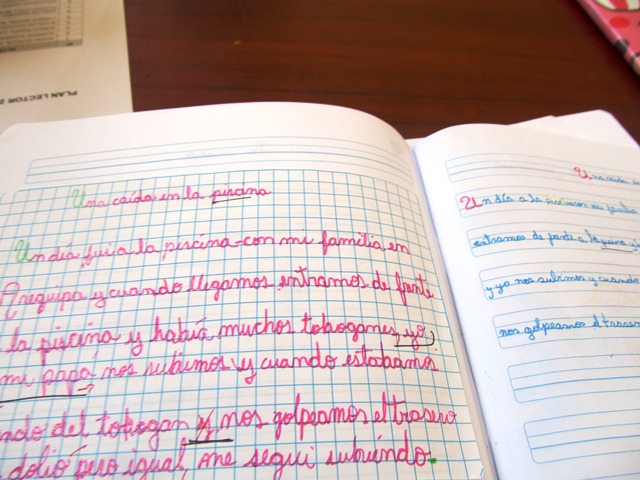 PLAN LECTOR 2
Una caída en la piscina
Un día fui a la piscina con mi familia en
Arequipa y cuando llegamos entramos de frente
la piscina y había muchos toboganes yo
mi papá nos subimos y cuando estabamos
ndo del tobogan y nos golpeamos el trasero
dolió pero igual me segui subiendo.
Una caída
Un día a la piscina con mi
entramos de frente a la
y yo nos subimos y cuando
nos golpeamos el trasero